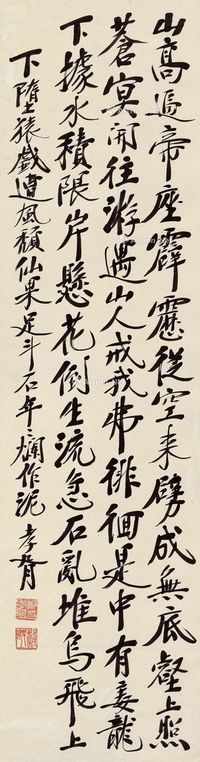 山高逼帝座霹靂從空来劈成無底壑上照
蒼冥開往游遇山人戒我弗徘徊是中有毒龍
下據水積隈岸懸花倒生流急石亂堆鳥飛上
下墮猿戲遭風頹仙果足斗石年〻爛作泥 孝胥